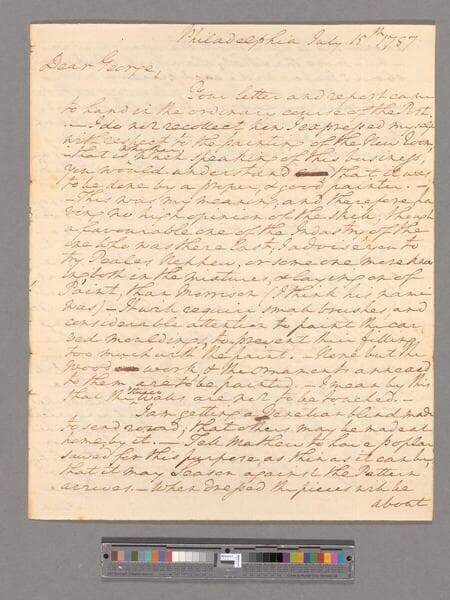 Philadelphia July 15th 1787
Dear George,
Your letter and report came
to hand in the ordinary course of the Post.
— I do not recollect how I expressed myself
with respect to the painting of the New Room,
that is, whether when speaking of this business,
you would understand that it was
to be done by a proper, & good painter. —
— This was my meaning, and therefore ha
ving no high opinion of the skill, though
a favourable one of the Industry of the
one who was there last, I advise you to
try Peales Nephew, or some one more know
ing both in the mixture, & laying on of
Paint, than Morrison (I think his name
was) — It will require small brushes, and
considerable attention to paint the car
ved mouldings, to prevent their filling
too much with the paint. — None but the
wood work & the ornaments annexed
to them are to be painted. — I mean by this
that the stucco walls are not to be touched. —
I am getting a Venetian blind made
to send round, that others may be made at
home, by it. — Tell Mathew to have poplar
sawed for this purpose as thin as it can be,
that it may season against the Pattern
arrives. — When dressed the pieces will be
about